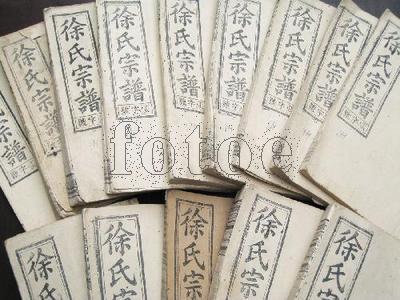 徐氏宗譜
徐氏宗譜
徐氏宗譜
徐氏宗譜
徐氏宗譜
徐氏宗譜
徐氏宗譜
徐氏宗譜
氏宗譜
徐氏宗
徐氏宗
徐氏宗
徐氏宗
徐氏宗
fotoe